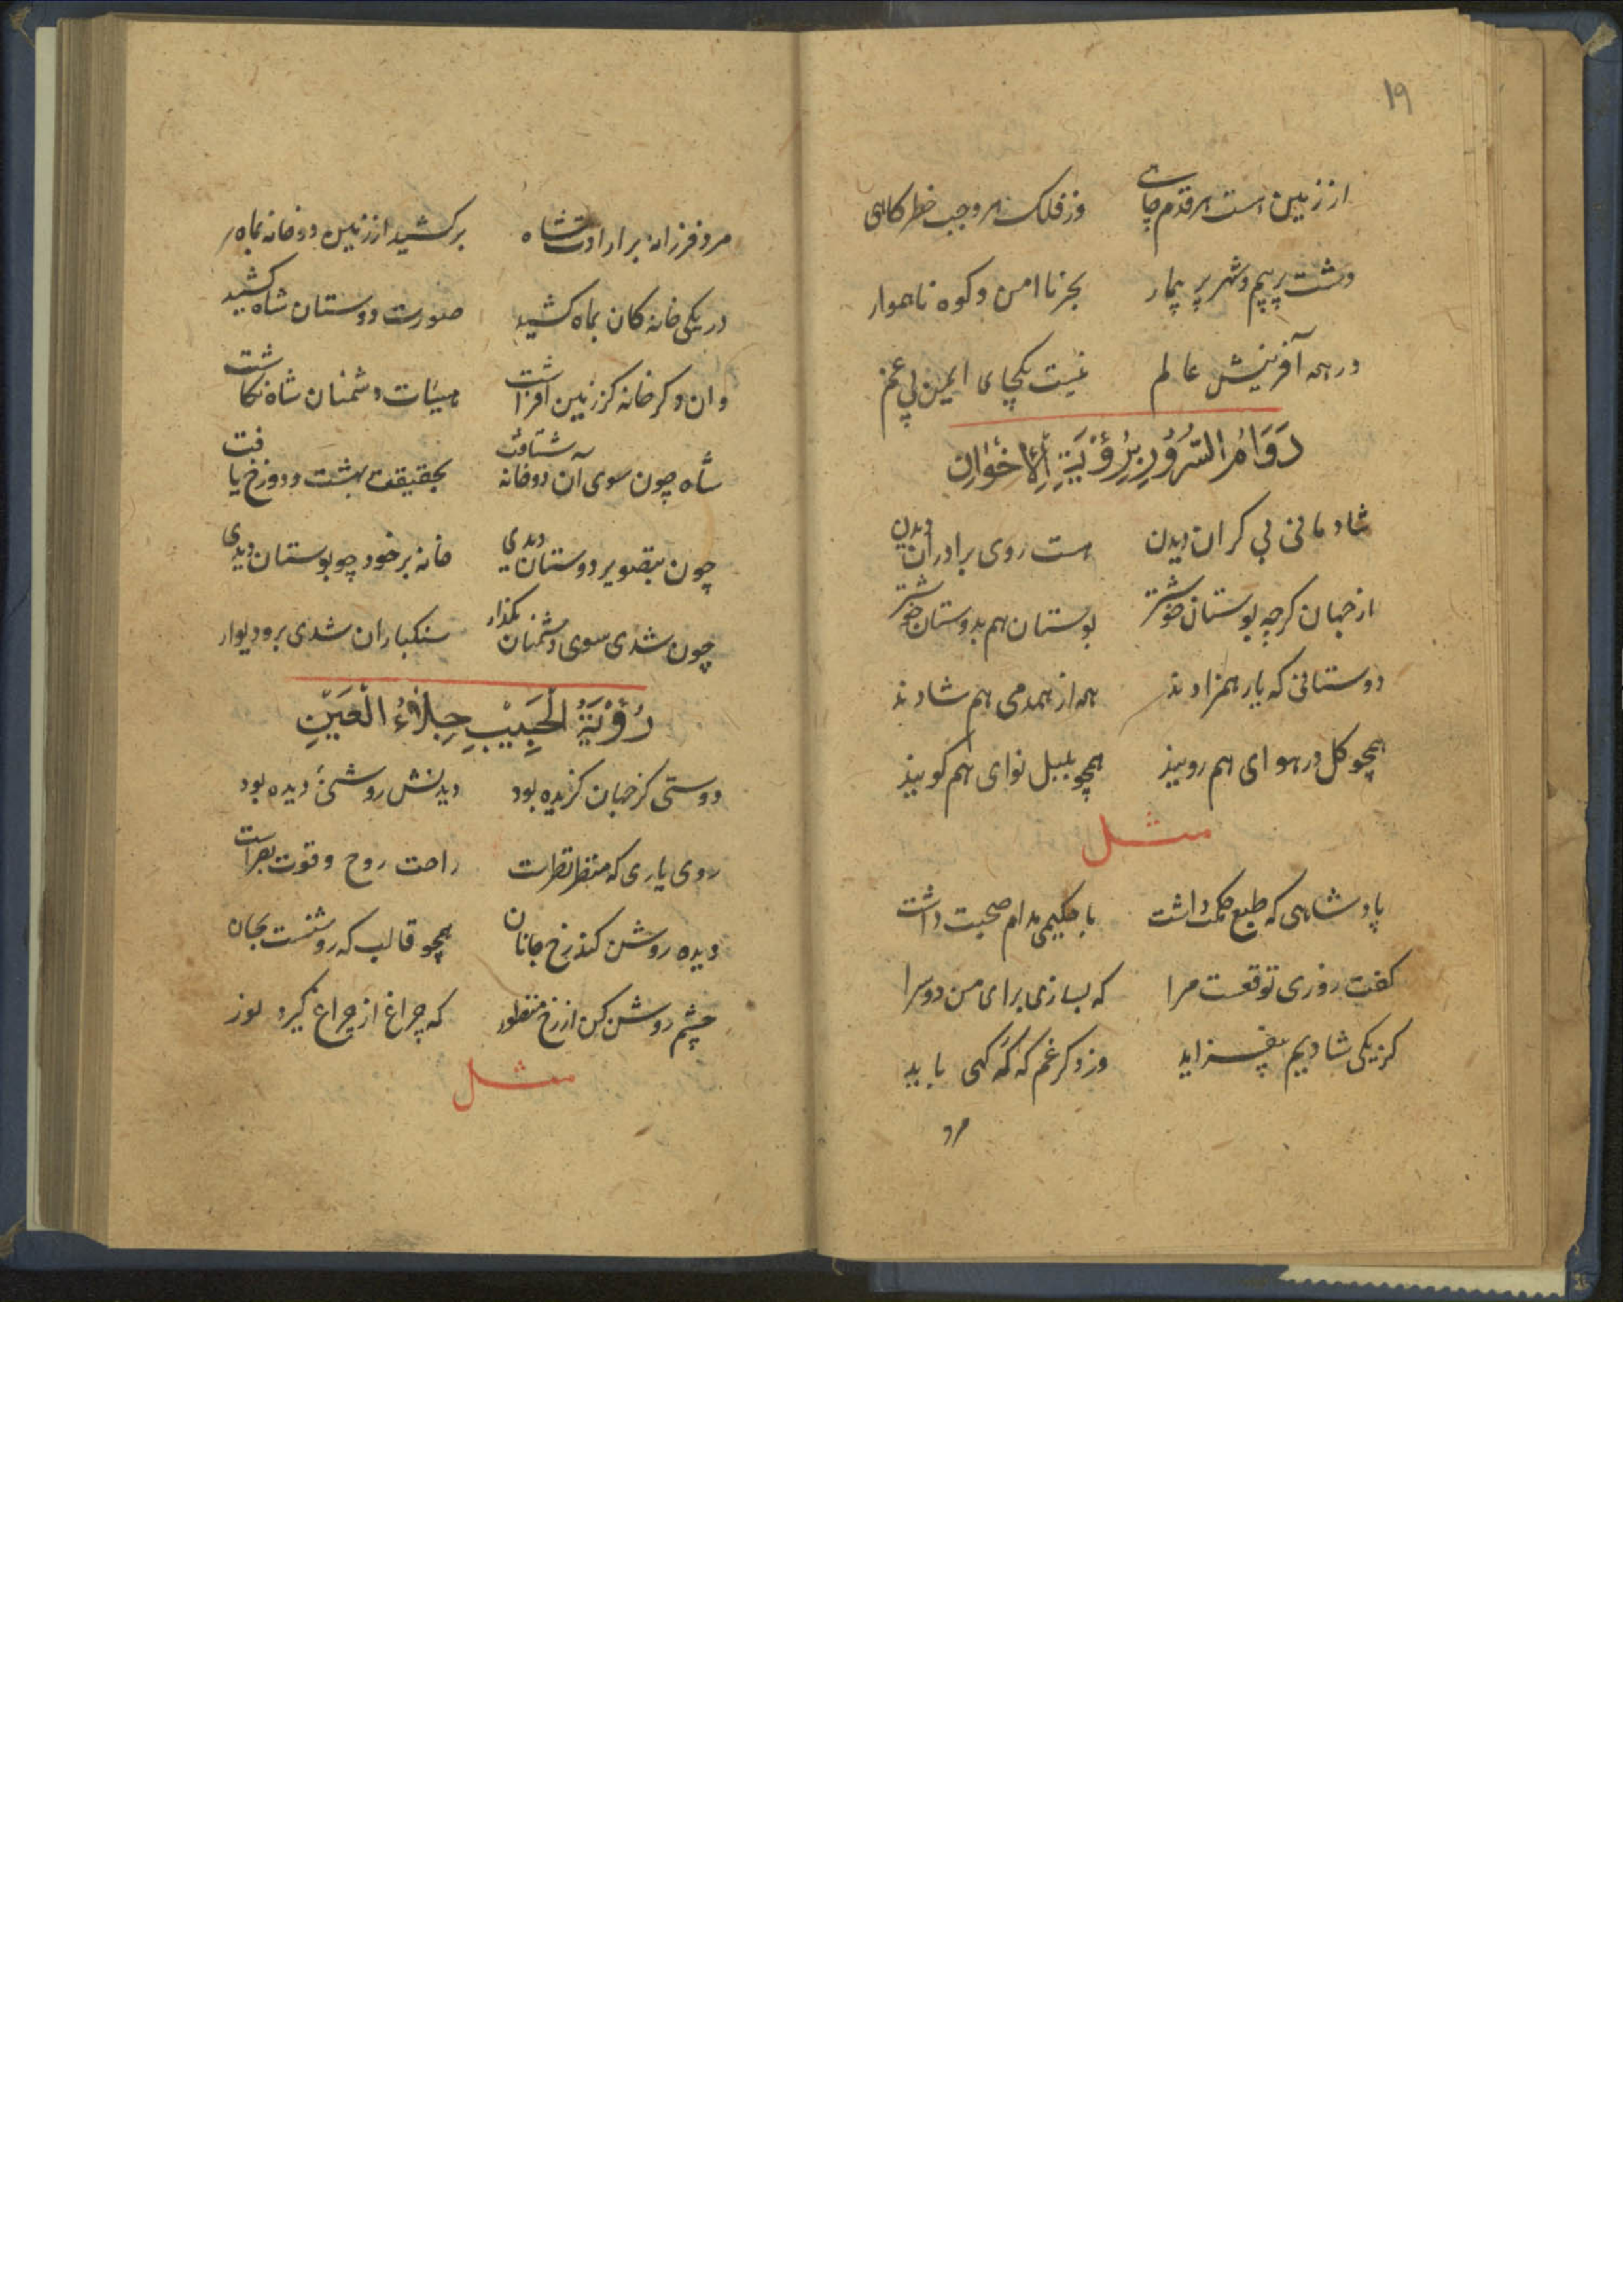 ١٩
از زمین است هر قدم چاهی وز فلک هر وجب خطرکاهی
دشت پر بیم و شهر پر پیکار بحر ناامن و کوه ناهموار
در همه آفرینش عالم نیست یکجای ایمن بی غم
دَوَامُ السُّرُوْرِ بِرُؤْيَةِ الْاِخْوَانِ
شادمانی بی کران دیدن هست روی برادران دیدن
از جهان کرچه بوستان خوشتر بوستان هم بدوستان خوشتر
دوستانی که یار همزادند همه از همدمی هم شادند
همچو کل در هوای هم رویند همچو بلبل نوای هم کویند
مثل
پادشاهی که طبع حکمت داشت با حکیمی مدام صحبت داشت
کفت روزی توقعست مرا که بسازی برای من دو سرا
کز یکی شادیم بیفزاید وز دکر غم که که کهی باید
مرد
مرد فرزانه بر ارادت شاه برکشید از زمین دو خانه بماه
در یکی خانه کان بماه کشید صورت دوستان شاه کشید
وان دکر خانه کز زمین افراشت هیئات دشمنان شاه نکاشت
شاه چون سوی آن دو خانه شتافت بحقیقت بهشت و دوزخ یافت
چون بتصویر دوستان دیدی خانه بر خود چو بوستان دیدی
چون شدی سوی دشمنان بکذار سنکباران شدی بر و دیوار
رُؤْيَةُ الْحَبِيْبِ جِلَاءُ الْعَيْنِ
دوستی کز جهان کزیده بود دیدنش روشنئ دیده بود
روی یاری که منظر نظرست راحت روح و قوت بصراست
دیده روشن کند رخ جانان همچو قالب که روشنست بجان
چشم روشن کن از رخ منظور که چراغ از چراغ کیرد نور
مثل